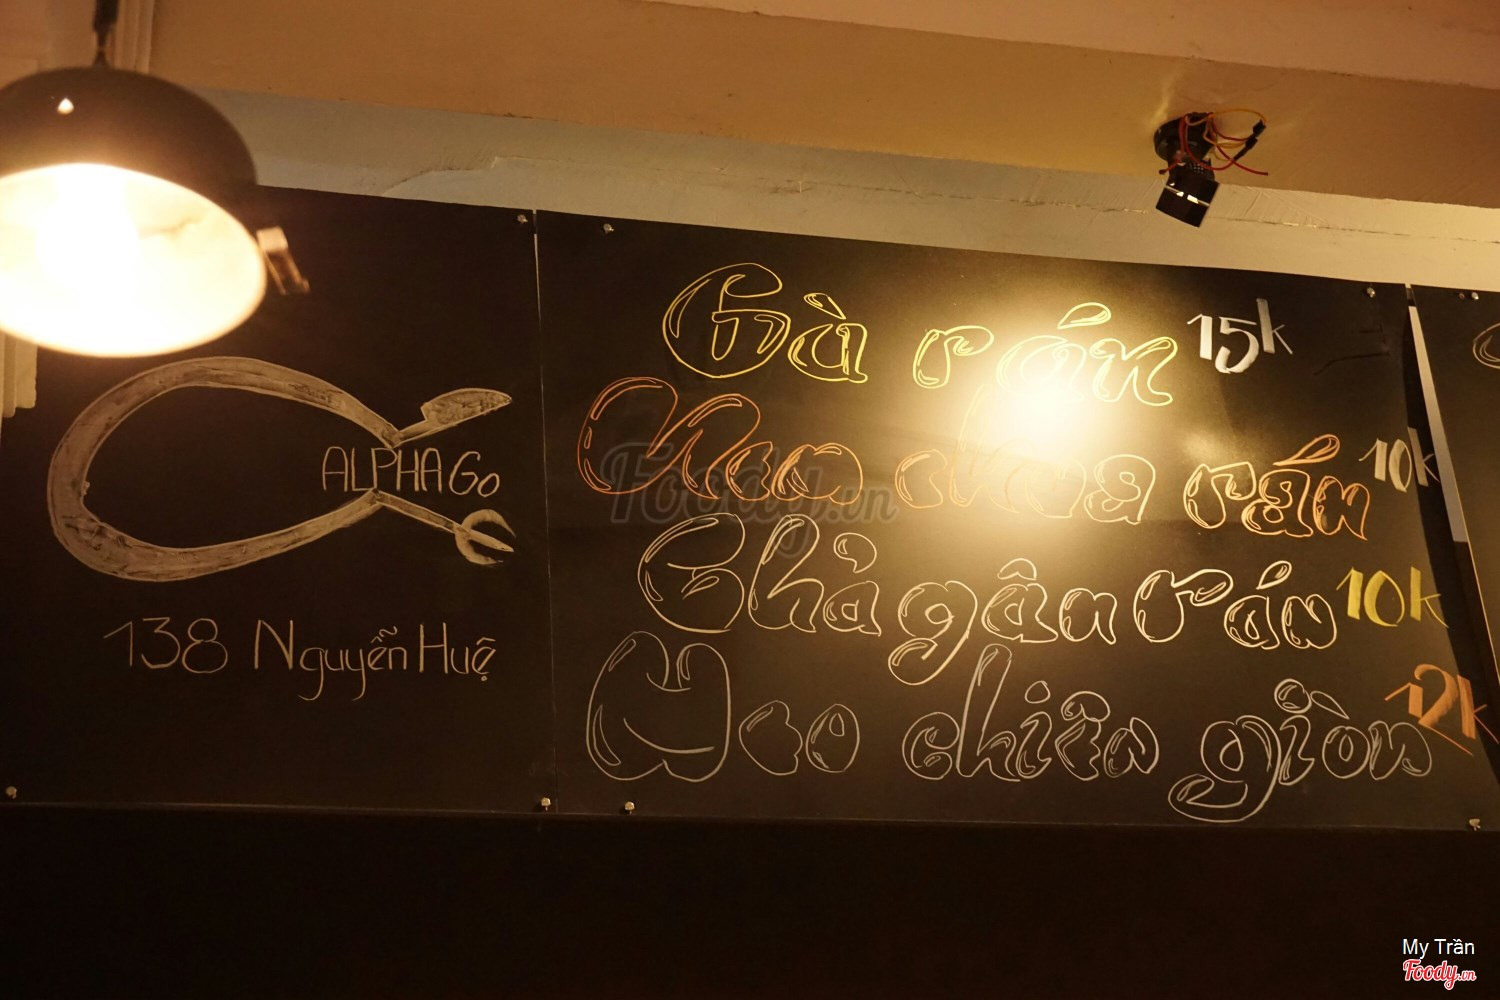 ALPHAGo
138 Nguyễn Huệ
Gà rán 15k
Nem chua rán 10k
Chả gân rán 10k
Heo chiên giòn 12k
Foody.vn
My Trần
Foody.vn